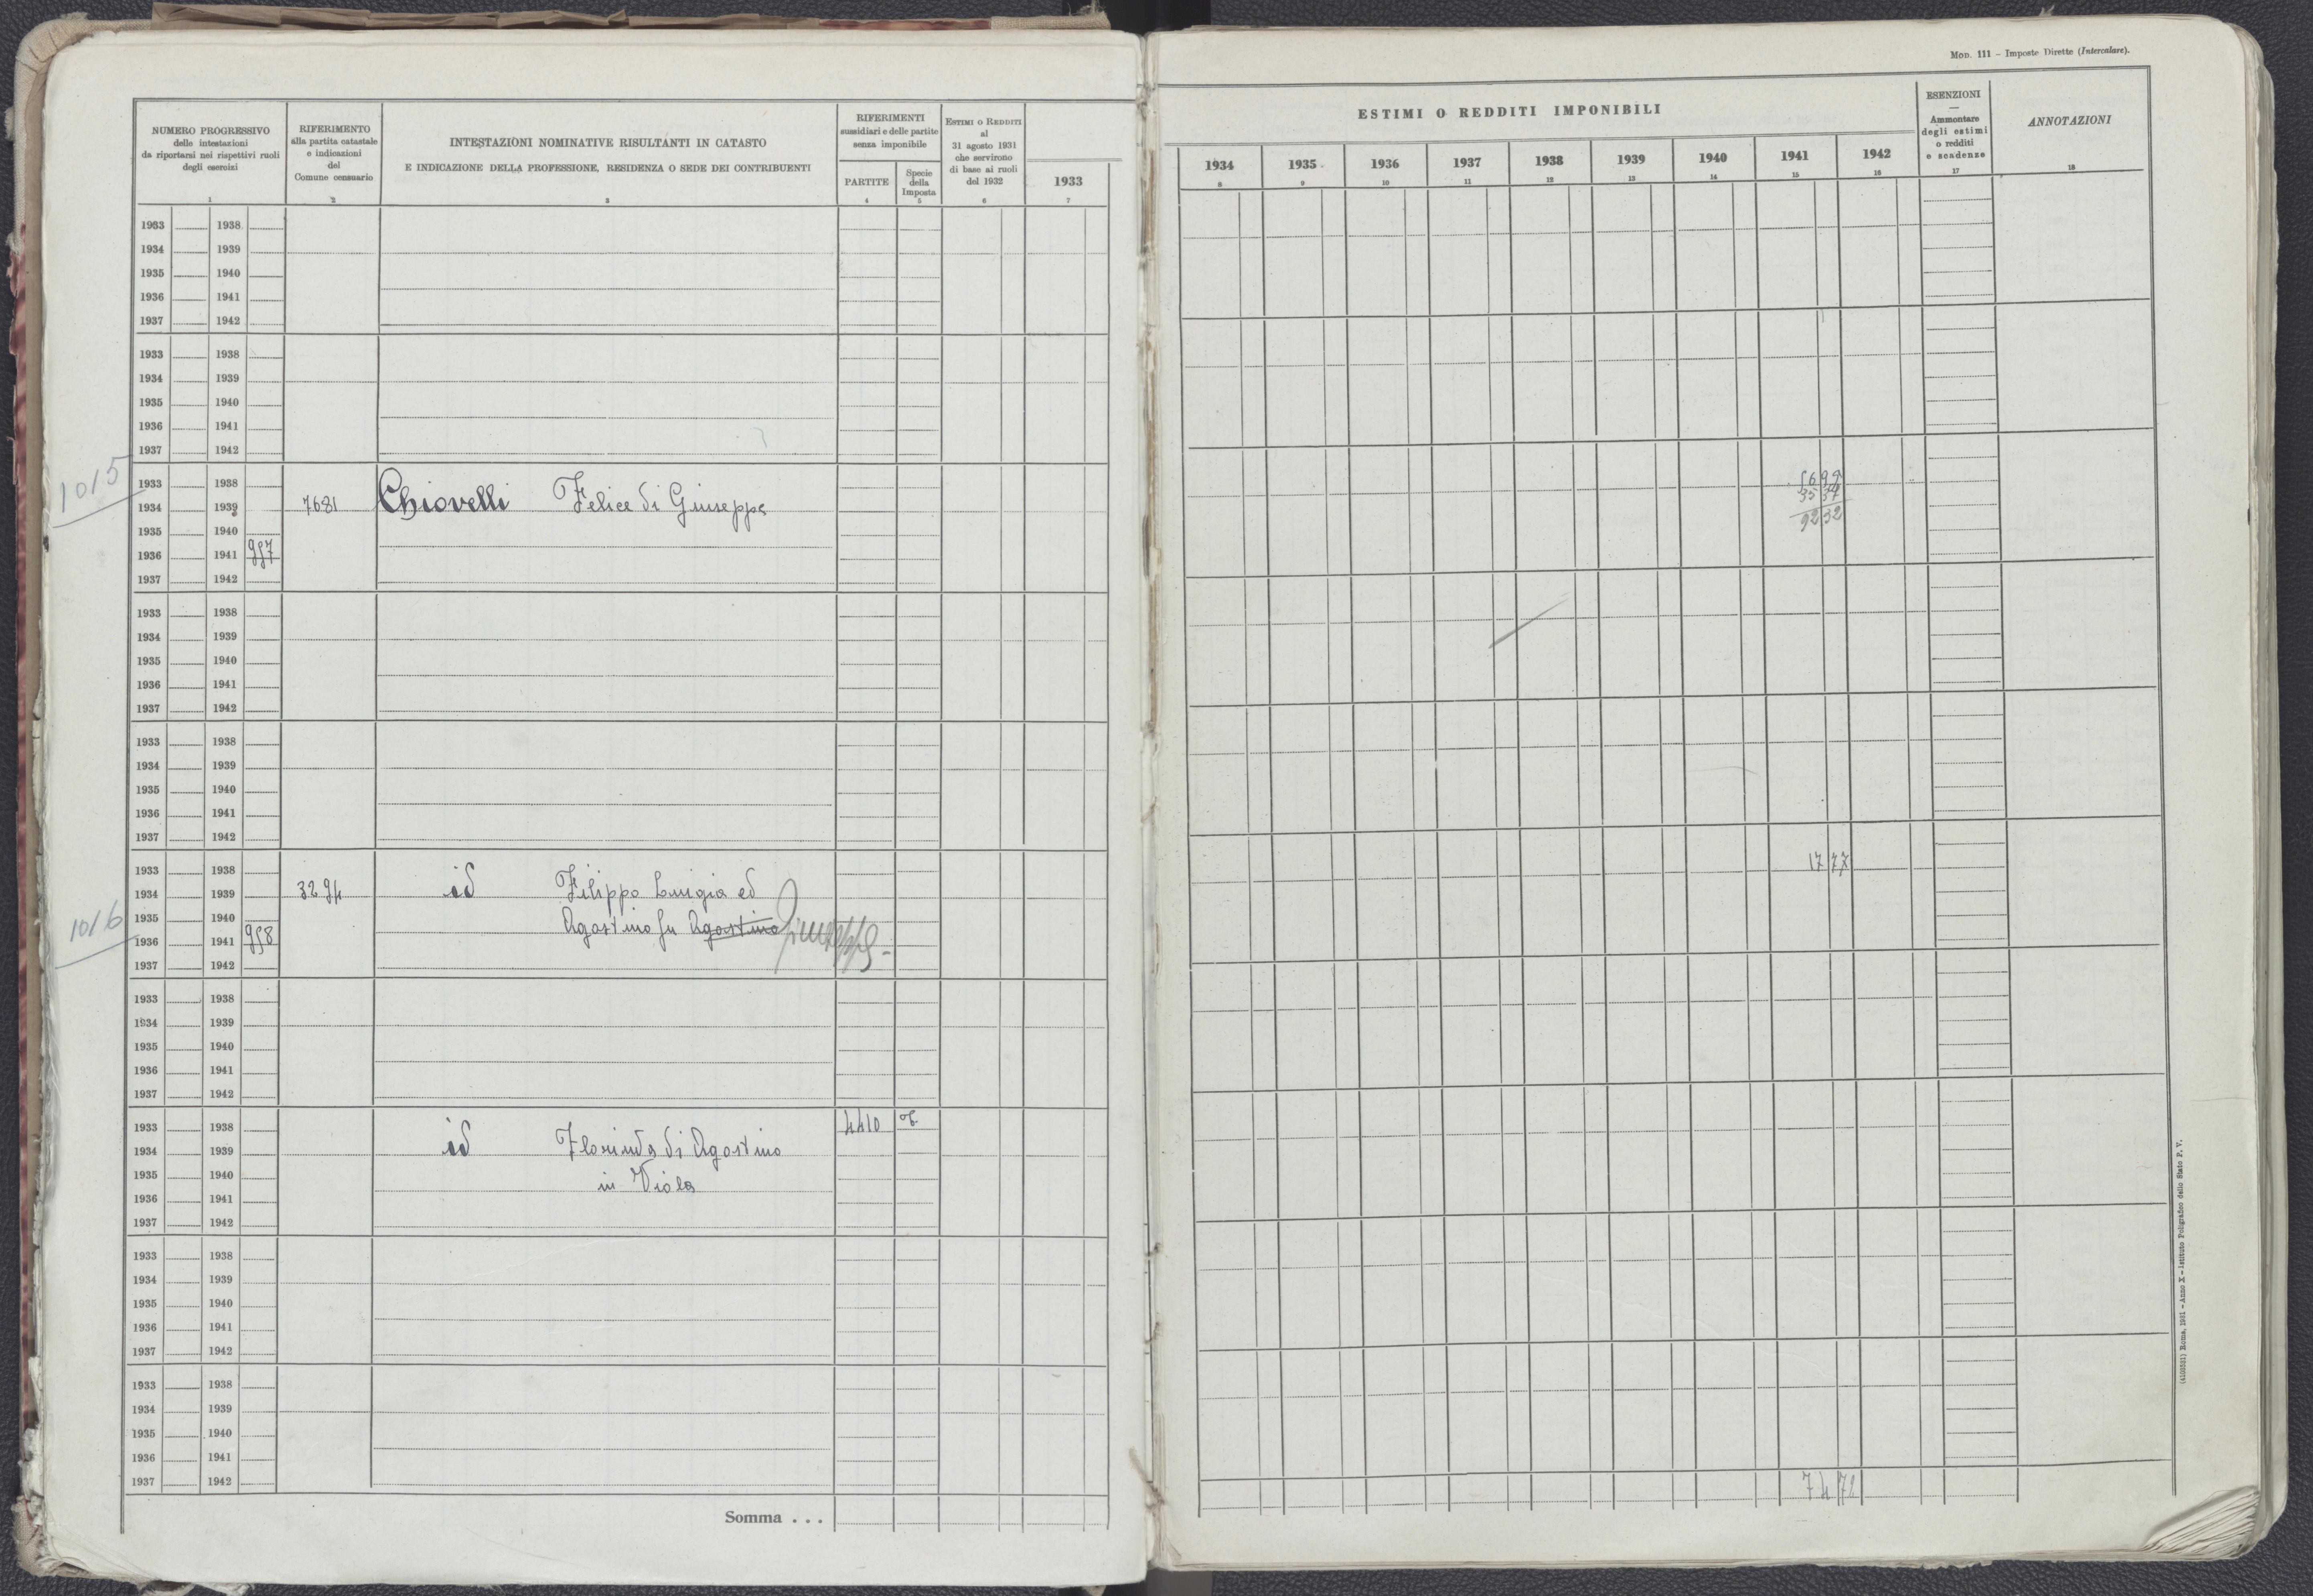 Mod. 111 – Imposte Dirette (Intercalare).
NUMERO PROGRESSIVO
delle intestazioni
da riportarsi nei rispettivi ruoli
degli esercizi
1
RIFERIMENTO
alla partita catastale
e indicazioni
del
Comune censuario
2
INTESTAZIONI NOMINATIVE RISULTANTI IN CATASTO
E INDICAZIONE DELLA PROFESSIONE, RESIDENZA O SEDE DEI CONTRIBUENTI
3
RIFERIMENTI
sussidiari e delle partite
senza imponibile
PARTITE
4
Specie
della
Imposta
5
Estimi o Redditi
al
31 agosto 1931
che servirono
di base ai ruoli
del 1932
6
1933
7
ESTIMI O REDDITI IMPONIBILI
1934 1935 1936 1937 1938 1939 1940 1941 1942
8 9 10 11 12 13 14 15 16
ESENZIONI
—
Ammontare
degli estimi
o redditi
e scadenze
17
ANNOTAZIONI
18
1933 1938
1934 1939
1935 1940
1936 1941
1937 1942
1933 1938
1934 1939
1935 1940
1936 1941
1937 1942
1015
1933 1938
1934 1939 7681 Chiovelli Felice di Giuseppe
1935 1940
1936 1941 957
1937 1942
56 95
35 37
92 32
1933 1938
1934 1939
1935 1940
1936 1941
1937 1942
1933 1938
1934 1939
1935 1940
1936 1941
1937 1942
1933 1938 17 77
1934 1939 3294 id Filippo Luigia ed
1016
1935 1940 Agostino fu Agostino Giuseppe
1936 1941 958
1937 1942
1933 1938
1934 1939
1935 1940
1936 1941
1937 1942
1933 1938 4410
1934 1939 id Florinda di Agostino
1935 1940 in Viola
1936 1941
1937 1942
1933 1938
1934 1939
1935 1940
1936 1941
1937 1942
1933 1938
1934 1939
1935 1940
1936 1941
1937 1942
74 72
Somma . . .
(4105531) Roma, 1931 – Anno X – Istituto Poligrafico dello Stato P. V.